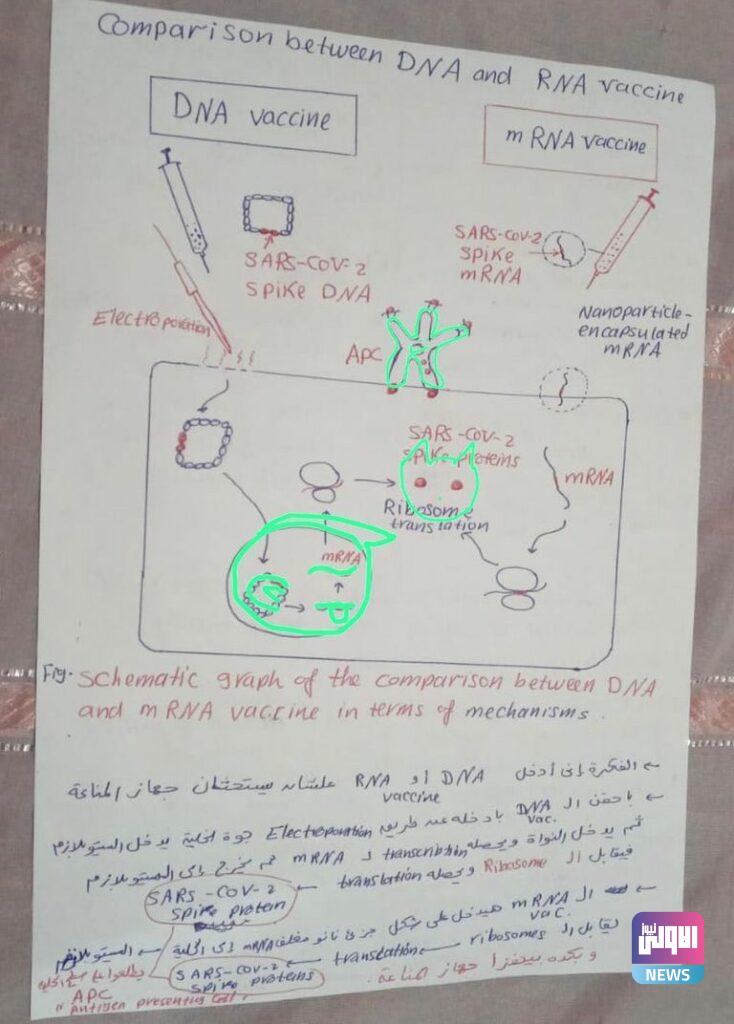 Comparison between DNA and RNA vaccine
DNA vaccine
mRNA vaccine
SARS-CoV-2
Spike DNA
SARS-CoV-2
Spike
mRNA
Electroporation
Nanoparticle-
encapsulated
mRNA
APC
SARS-CoV-2
Spike proteins
mRNA
Ribosome
translation
mRNA
Fig. Schematic graph of the comparison between DNA
and mRNA vaccine in terms of mechanisms.
← الفكرة إنى أدخل DNA أو RNA علشان يستحثان جهاز المناعة
vaccine
← باحقن ال DNA بادخله عن طريق Electroporation جوة الخلية يدخل السيتوبلازم
vac.
ثم يدخل النواة ويحصله transcription لـ mRNA ثم يخرج إلى السيتوبلازم
فيقابل ال Ribosome ويحصله translation ←
SARS-COV-2
Spike protein
← ال mRNA هيدخل على شكل جزئ نانو مغلف mRNA إلى الخلية ← السيتوبلازم
vac.
يقابل ال ribosomes ← translation ←
SARS-COV-2
Spike proteins
وبكده بيحفزا جهاز مناعة.
APC
"Antigen presenting cell"
الاولى نيوز
NEWS